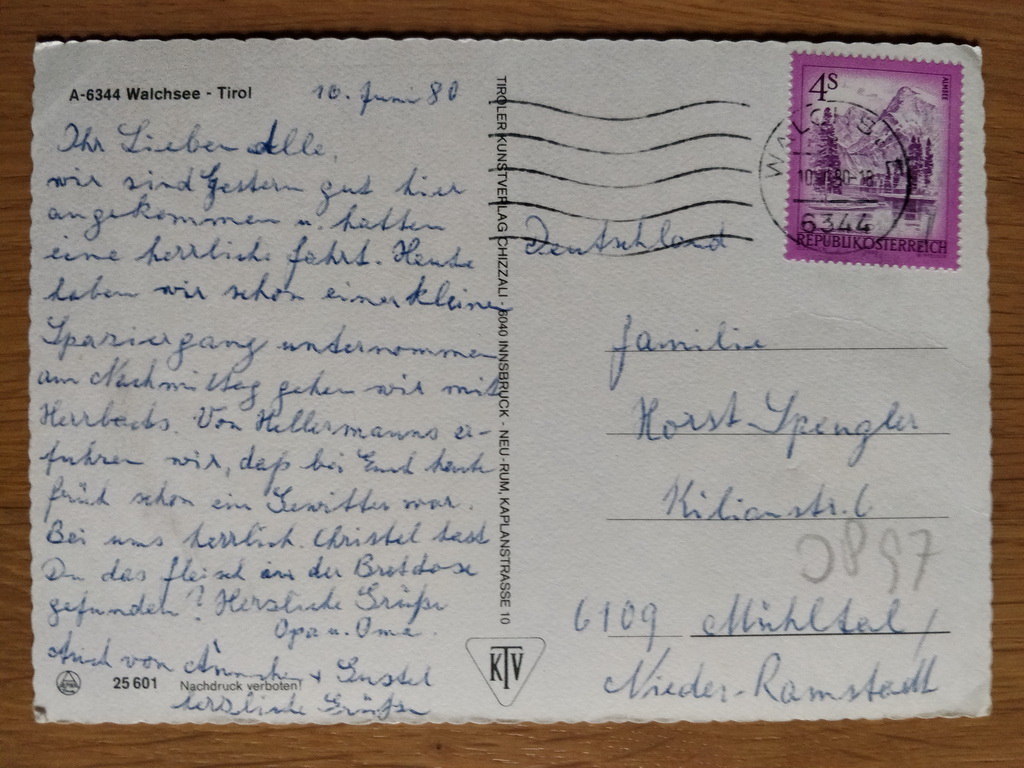 A-6344 Walchsee - Tirol
10. Juni 80
Ihr Lieben Alle,
wir sind Gestern gut hier
angekommen u. hatten
eine herrliche fahrt. Heute
haben wir schon einen kleinen
Spaziergang unternommen
am Nachmittag gehen wir mit
Von Hellermanns er-
fuhren wir, daß bei Euch heute
früh schon ein Gewitter war.
Bei uns herrlich. Christel hast
Du das fleisch in der Brotdose
gefunden? Herzliche Grüße
Opa u. Oma.
Auch von + Gustel
herzliche Grüße
25 601
Nachdruck verboten!
TIROLER KUNSTVERLAG CHIZZALI · 6040 INNSBRUCK - NEU-RUM, KAPLANSTRASSE 10
KTV
4S
ALMSEE
REPUBLIK ÖSTERREICH
WALCHSEE
6344
Deutschland
Familie
Horst Spengler
Kilianstr. 6
0897
6109 Mühltal /
Nieder-Ramstadt